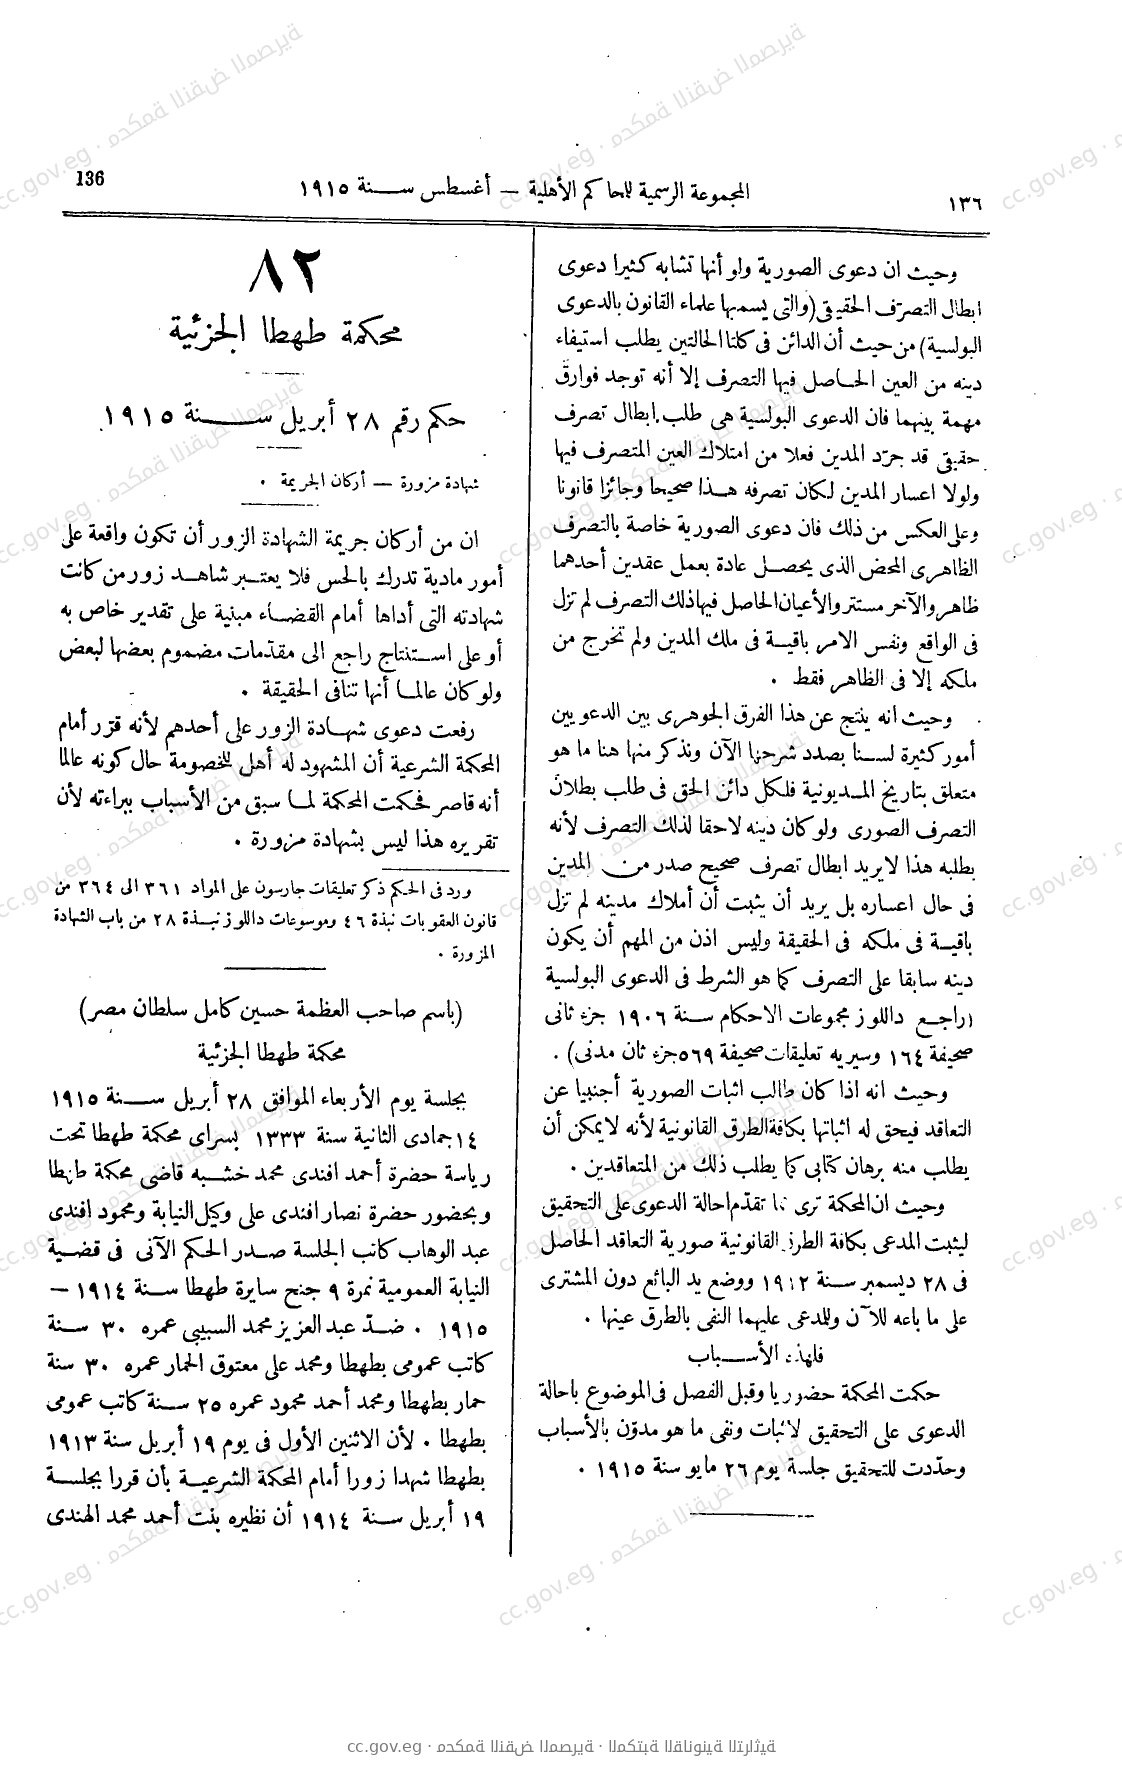 136
المجموعة الرسمية للمحاكم الأهلية — أغسطس سنة ١٩١٥
١٣٦
وحيث ان دعوى الصورية ولو أنها تشابه كثيرا دعوى
ابطال التصرّف الحقيقى (والتى يسميها علماء القانون بالدعوى
البولسية) من حيث أن الدائن فى كلتا الحالتين يطلب استيفاء
دينه من العين الحاصل فيها التصرف إلا أنه توجد فوارق
مهمة بينهما فان الدعوى البولسية هى طلب ابطال تصرف
حقيقى قد جرّد المدين فعلا من امتلاك العين المتصرف فيها
ولولا اعسار المدين لكان تصرفه هذا صحيحا وجائزا قانونا
وعلى العكس من ذلك فان دعوى الصورية خاصة بالتصرف
الظاهرى المحض الذى يحصل عادة بعمل عقدين أحدهما
ظاهر والآخر مستتر والأعيان الحاصل فيها ذلك التصرف لم تزل
فى الواقع ونفس الامر باقية فى ملك المدين ولم تخرج من
ملكه إلا فى الظاهر فقط .
وحيث انه ينتج عن هذا الفرق الجوهرى بين الدعويين
أمور كثيرة لسنا بصدد شرحها الآن ونذكر منها هنا ما هو
متعلق بتاريخ المديونية فلكل دائن الحق فى طلب بطلان
التصرف الصورى ولو كان دينه لاحقا لذلك التصرف لأنه
بطلبه هذا لا يريد ابطال تصرف صحيح صدر من المدين
فى حال اعساره بل يريد أن يثبت أن أملاك مدينه لم تزل
باقية فى ملكه فى الحقيقة وليس اذن من المهم أن يكون
دينه سابقا على التصرف كما هو الشرط فى الدعوى البولسية
(راجع داللوز مجموعات الاحكام سنة ١٩٠٦ جزء ثانى
صحيفة ١٦٤ وسيريه تعليقات صحيفة ٥٦٩ جزء ثان مدنى) .
وحيث انه اذا كان طالب اثبات الصورية أجنبيا عن
التعاقد فيحق له اثباتها بكافة الطرق القانونية لأنه لا يمكن أن
يطلب منه برهان كتابى كما يطلب ذلك من المتعاقدين .
وحيث ان المحكمة ترى مما تقدّم احالة الدعوى على التحقيق
ليثبت المدعى بكافة الطرق القانونية صورية التعاقد الحاصل
فى ٢٨ ديسمبر سنة ١٩١٢ ووضع يد البائع دون المشترى
على ما باعه للآن وللمدعى عليهما النفى بالطرق عينها .
فلهذه الأسباب
حكمت المحكمة حضوريا وقبل الفصل فى الموضوع باحالة
الدعوى على التحقيق لاثبات ونفى ما هو مدوّن بالأسباب
وحدّدت للتحقيق جلسة يوم ٢٦ مايو سنة ١٩١٥ .
٨٢
محكمة طهطا الجزئية
حكم رقم ٢٨ أبريل سنة ١٩١٥
شهادة مزورة — أركان الجريمة .
ان من أركان جريمة الشهادة الزور أن تكون واقعة على
أمور مادية تدرك بالحس فلا يعتبر شاهد زور من كانت
شهادته التى أداها أمام القضاء مبنية على تقدير خاص به
أو على استنتاج راجع الى مقدّمات مضموم بعضها لبعض
ولو كان عالما أنها تنافى الحقيقة .
رفعت دعوى شهادة الزور على أحدهم لأنه قرّر أمام
المحكمة الشرعية أن المشهود له أهل للخصومة حال كونه عالما
أنه قاصر فحكمت المحكمة لما سبق من الأسباب ببراءته لأن
تقريره هذا ليس بشهادة مزورة .
ورد فى الحكم ذكر تعليقات جارسون على المواد ٣٦١ الى ٣٦٤ من
قانون العقوبات نبذة ٤٦ وموسوعات داللوز نبذة ٢٨ من باب الشهادة
المزورة .
(باسم صاحب العظمة حسين كامل سلطان مصر)
محكمة طهطا الجزئية
بجلسة يوم الأربعاء الموافق ٢٨ أبريل سنة ١٩١٥
١٤ جمادى الثانية سنة ١٣٣٣ بسراى محكمة طهطا تحت
رياسة حضرة أحمد افندى محمد خشبه قاضى محكمة طهطا
وبحضور حضرة نصار افندى على وكيل النيابة ومحمود افندى
عبد الوهاب كاتب الجلسة صدر الحكم الآتى فى قضية
النيابة العمومية نمرة ٩ جنح سايرة طهطا سنة ١٩١٤ —
١٩١٥ . ضدّ عبد العزيز محمد السبيبى عمره ٣٠ سنة
كاتب عمومى بطهطا ومحمد على معتوق الحمار عمره ٣٠ سنة
حمار بطهطا ومحمد أحمد محمود عمره ٢٥ سنة كاتب عمومى
بطهطا . لأن الاثنين الأول فى يوم ١٩ أبريل سنة ١٩١٣
بطهطا شهدا زورا أمام المحكمة الشرعية بأن قررا بجلسة
١٩ أبريل سنة ١٩١٤ أن نظيره بنت أحمد محمد الهندى
cc.gov.eg · محكمة النقض المصرية · المكتبة القانونية التراثية